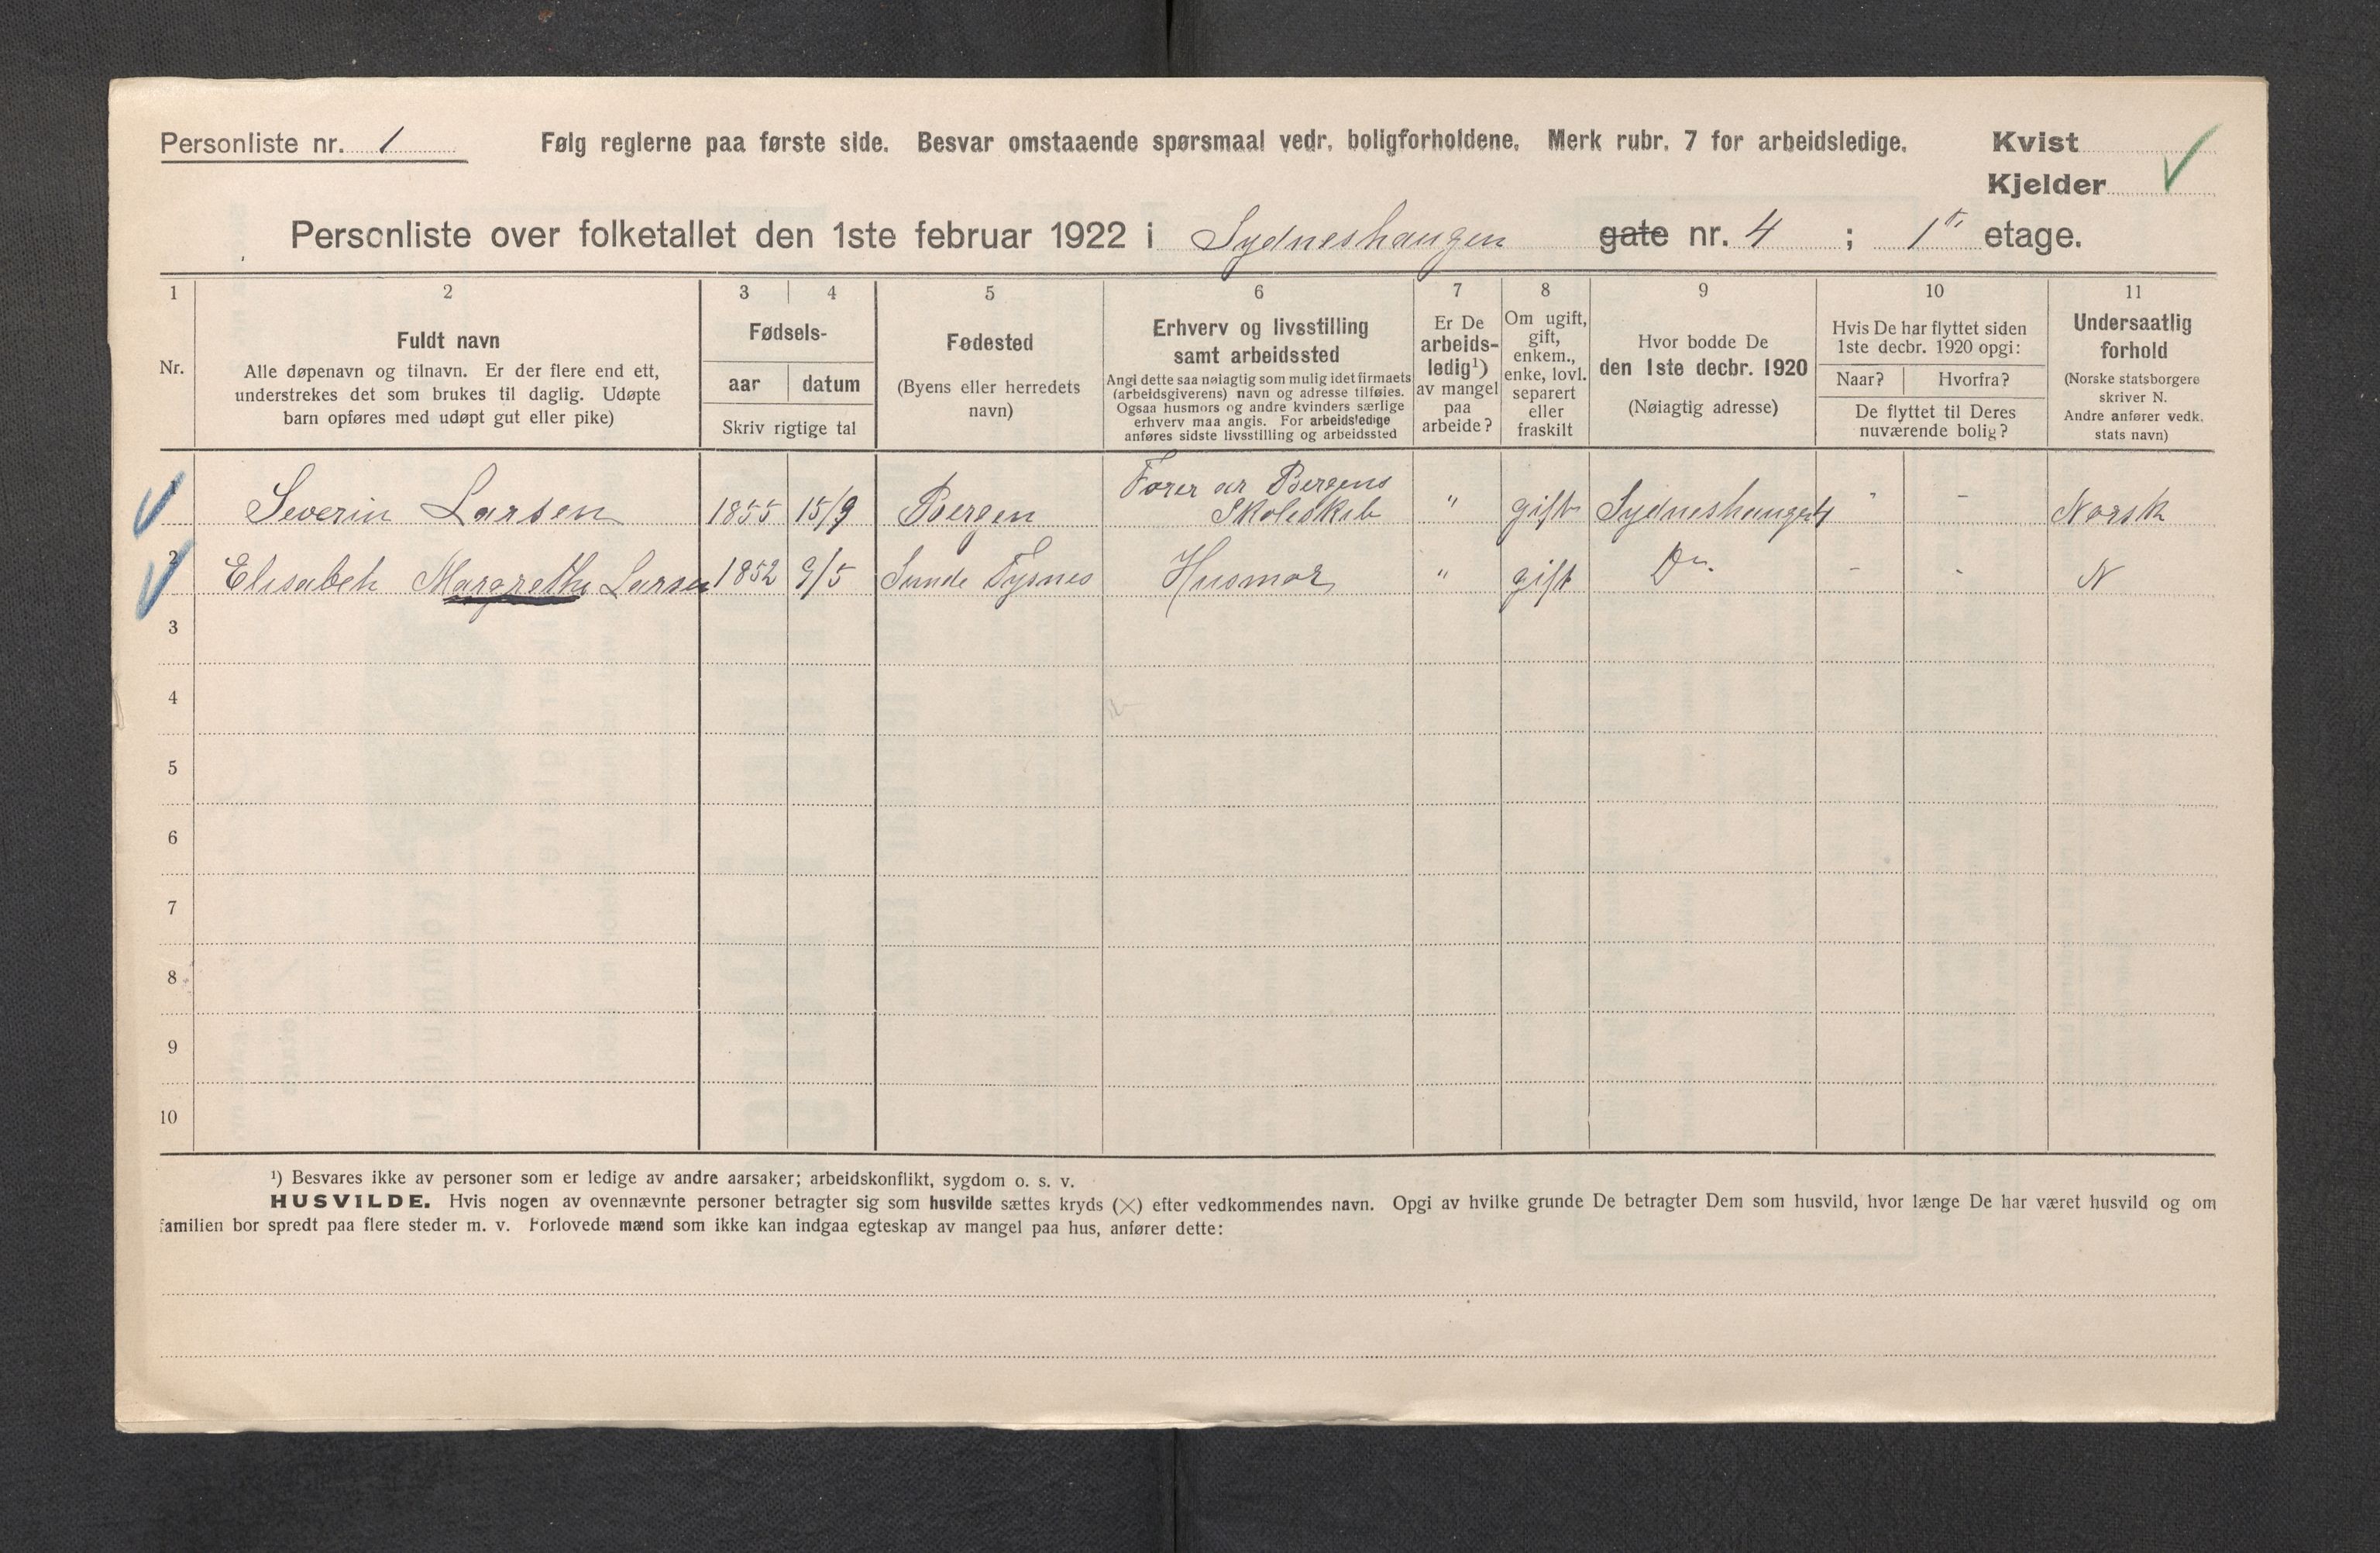 Personliste nr. 1
Følg reglerne paa første side. Besvar omstaaende spørsmaal vedr. boligforholdene. Merk rubr. 7 for arbeidsledige.
Kvist
Kjelder
Personliste over folketallet den 1ste februar 1922 i Sydneshaugen gate nr. 4 ; 1ste etage.
1 2 3 4 5 6 7 8 9 10 11
Nr.
Fuldt navn
Alle døpenavn og tilnavn. Er der flere end ett,
understrekes det som brukes til daglig. Udøpte
barn opføres med udøpt gut eller pike)
Fødsels-
aar datum
Skriv rigtige tal
Fødested
(Byens eller herredets
navn)
Erhverv og livsstilling
samt arbeidssted
Angi dette saa nøiagtig som mulig idet firmaets
(arbeidsgiverens) navn og adresse tilføies.
Ogsaa husmors og andre kvinders særlige
erhverv maa angis. For arbeidsledige
anføres sidste livsstilling og arbeidssted
Er De
arbeids-
ledig¹)
av mangel
paa
arbeide?
Om ugift,
gift,
enkem.,
enke, lovl.
separert
eller
fraskilt
Hvor bodde De
den 1ste decbr. 1920
(Nøiagtig adresse)
Hvis De har flyttet siden
1ste decbr. 1920 opgi:
Naar? Hvorfra?
De flyttet til Deres
nuværende bolig?
Undersaatlig
forhold
(Norske statsborgere
skriver N.
Andre anfører vedk.
stats navn)
1 Severin Larsen 1855 15/9 Bergen Fører av Bergens Skoleskib " gift Sydneshaugen 4 " - Norsk
2 Elisabeh Margrethe Larsen 1852 9/5 Sunde Tysnes Husmor " gift Do. - - N
3
4
5
6
7
8
9
10
¹) Besvares ikke av personer som er ledige av andre aarsaker; arbeidskonflikt, sygdom o. s. v.
HUSVILDE. Hvis nogen av ovennævnte personer betragter sig som husvilde sættes kryds (×) efter vedkommendes navn. Opgi av hvilke grunde De betragter Dem som husvild, hvor længe De har været husvild og om
familien bor spredt paa flere steder m. v. Forlovede mænd som ikke kan indgaa egteskap av mangel paa hus, anfører dette: